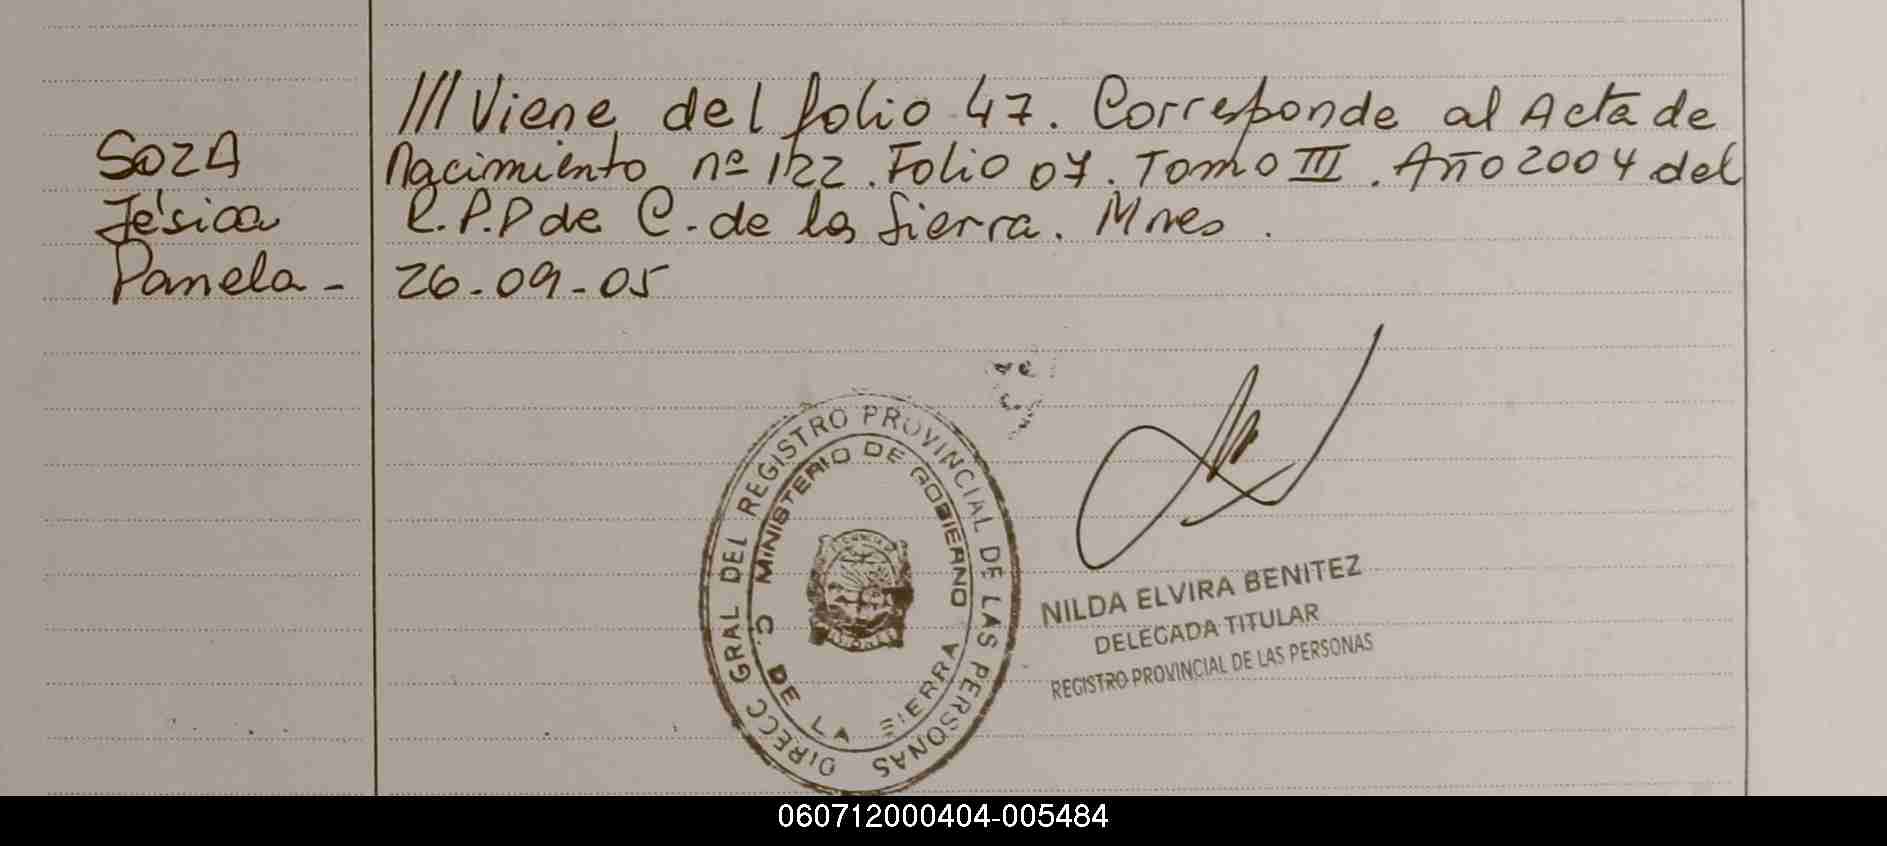 SOZA
Jésica
Pamela -
/// Viene del folio 47. Corresponde al Acta de
Nacimiento nº 122. Folio 07. Tomo III. Año 2004 del
R.P.P de C. de la Sierra. Mnes.
26-09-05
DIRECC GRAL DEL REGISTRO PROVINCIAL DE LAS PERSONAS
MINISTERIO DE GOBIERNO
C. DE LA SIERRA
NILDA ELVIRA BENITEZ
DELEGADA TITULAR
REGISTRO PROVINCIAL DE LAS PERSONAS
060712000404-005484